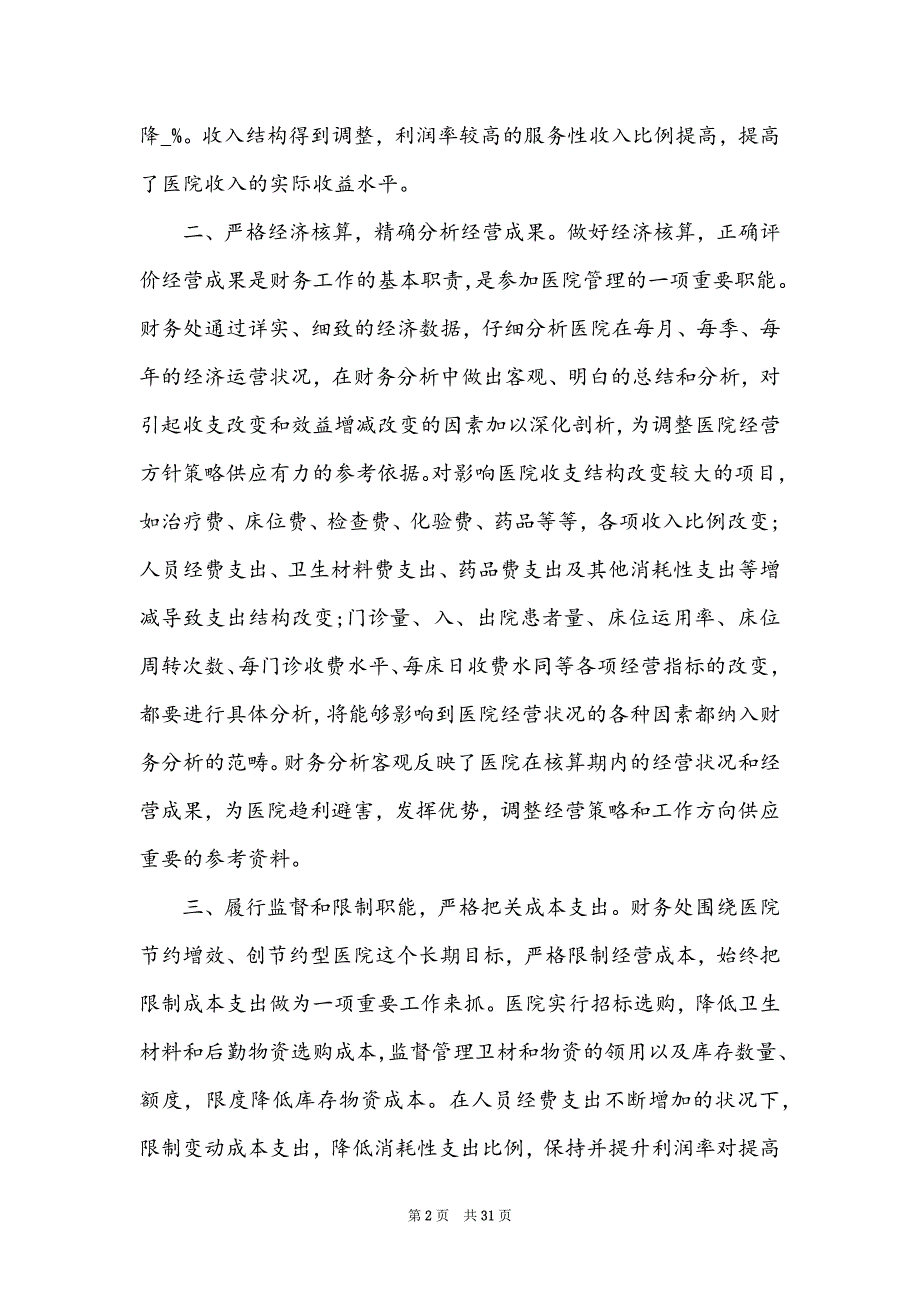 降_%。收入结构得到调整，利润率较高的服务性收入比例提高，提高
了医院收入的实际收益水平。
二、严格经济核算，精确分析经营成果。做好经济核算，正确评
价经营成果是财务工作的基本职责，是参加医院管理的一项重要职能。
财务处通过详实、细致的经济数据，仔细分析医院在每月、每季、每
年的经济运营状况，在财务分析中做出客观、明白的总结和分析，对
引起收支改变和效益增减改变的因素加以深化剖析，为调整医院经营
方针策略供应有力的参考依据。对影响医院收支结构改变较大的项目，
如治疗费、床位费、检查费、化验费、药品等等，各项收入比例改变；
人员经费支出、卫生材料费支出、药品费支出及其他消耗性支出等增
减导致支出结构改变；门诊量、入、出院患者量、床位运用率、床位
周转次数、每门诊收费水平、每床日收费水同等各项经营指标的改变，
都要进行具体分析，将能够影响到医院经营状况的各种因素都纳入财
务分析的范畴。财务分析客观反映了医院在核算期内的经营状况和经
营成果，为医院趋利避害，发挥优势，调整经营策略和工作方向供应
重要的参考资料。
三、履行监督和限制职能，严格把关成本支出。财务处围绕医院
节约增效、创节约型医院这个长期目标，严格限制经营成本，始终把
限制成本支出做为一项重要工作来抓。医院实行招标选购，降低卫生
材料和后勤物资选购成本，监督管理卫材和物资的领用以及库存数量、
额度，限度降低库存物资成本。在人员经费支出不断增加的状况下，
限制变动成本支出，降低消耗性支出比例，保持并提升利润率对提高
第 2 页 共 31 页